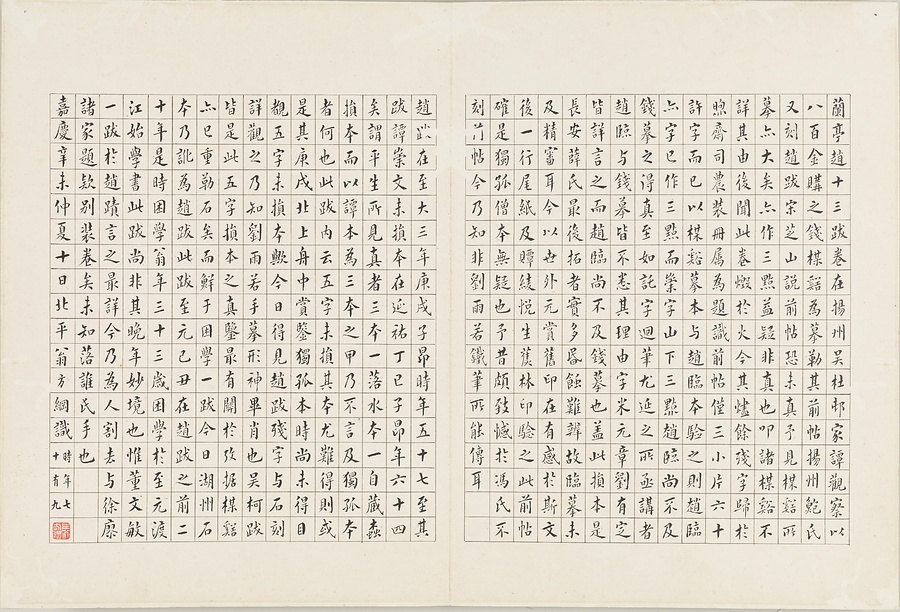 蘭亭趙十三跋卷在揚州吳杜邨家譚觀察以
八百金購之錢楳谿為摹勒其前帖揚州鮑氏
又刻趙跋宋芝山說前帖恐未真予見楳谿所
摹亦大矣亦作三點益疑非真也叩諸楳谿不
詳其由後聞此卷燬於火今其燼餘殘字歸於
煦齋司農裝冊屬為題識前帖僅三小片六十
許字而已以楳谿摹本与趙臨本驗之則趙臨
亦字已作三點而崇字山下三點趙臨尚不及
錢摹之得真至如託字迴筆尤延之所亟講者
趙臨与錢摹皆不悉其理由字米元章劉有定
皆詳言之而趙臨尚不及錢摹也盖此損本是
長安薛氏最後拓者實多昏蝕難辨故臨摹未
及精審耳今以世外元賞舊印在有感於斯文
後一行尾紙及賱綾悅生蕉林印驗之此前帖
確是獨孤僧本無疑也予昔頗致憾於馮氏不
刻前帖今乃知非劉雨若鐵筆所能傳耳
趙跋在至大三年庚戌子昂時年五十七至其
跋譚崇文未損本在延祐丁巳子昂年六十四
矣謂平生所見真者三本一落水本一自藏蟲
損本而以譚本為三本之甲乃不言及獨孤本
者何也此跋内云五字未損其本尤難得則或
是其庚戌北上舟中賞鑒獨孤本時尚未得目
觀五字未損本歟今日得見趙跋殘字与石刻
詳觀之乃知劉雨若手摹形神畢肖也吳柯跋
皆是此五字損本之真鑒最有關於攷据楳谿
亦已重勒石矣而鮮于困學一跋今日湖州石
本乃訛為趙跋此跋至元己丑在趙跋之前二
十年是時困學翁年三十三歲困學於至元渡
江始學書此跋尚非其晚年妙境也惟董文敏
一跋於趙蹟言之最詳今乃為人割去与徐廪
諸家題欵別裝卷矣未知落誰氏手也
嘉慶辛未仲夏十日北平翁方綱識時年七十有九